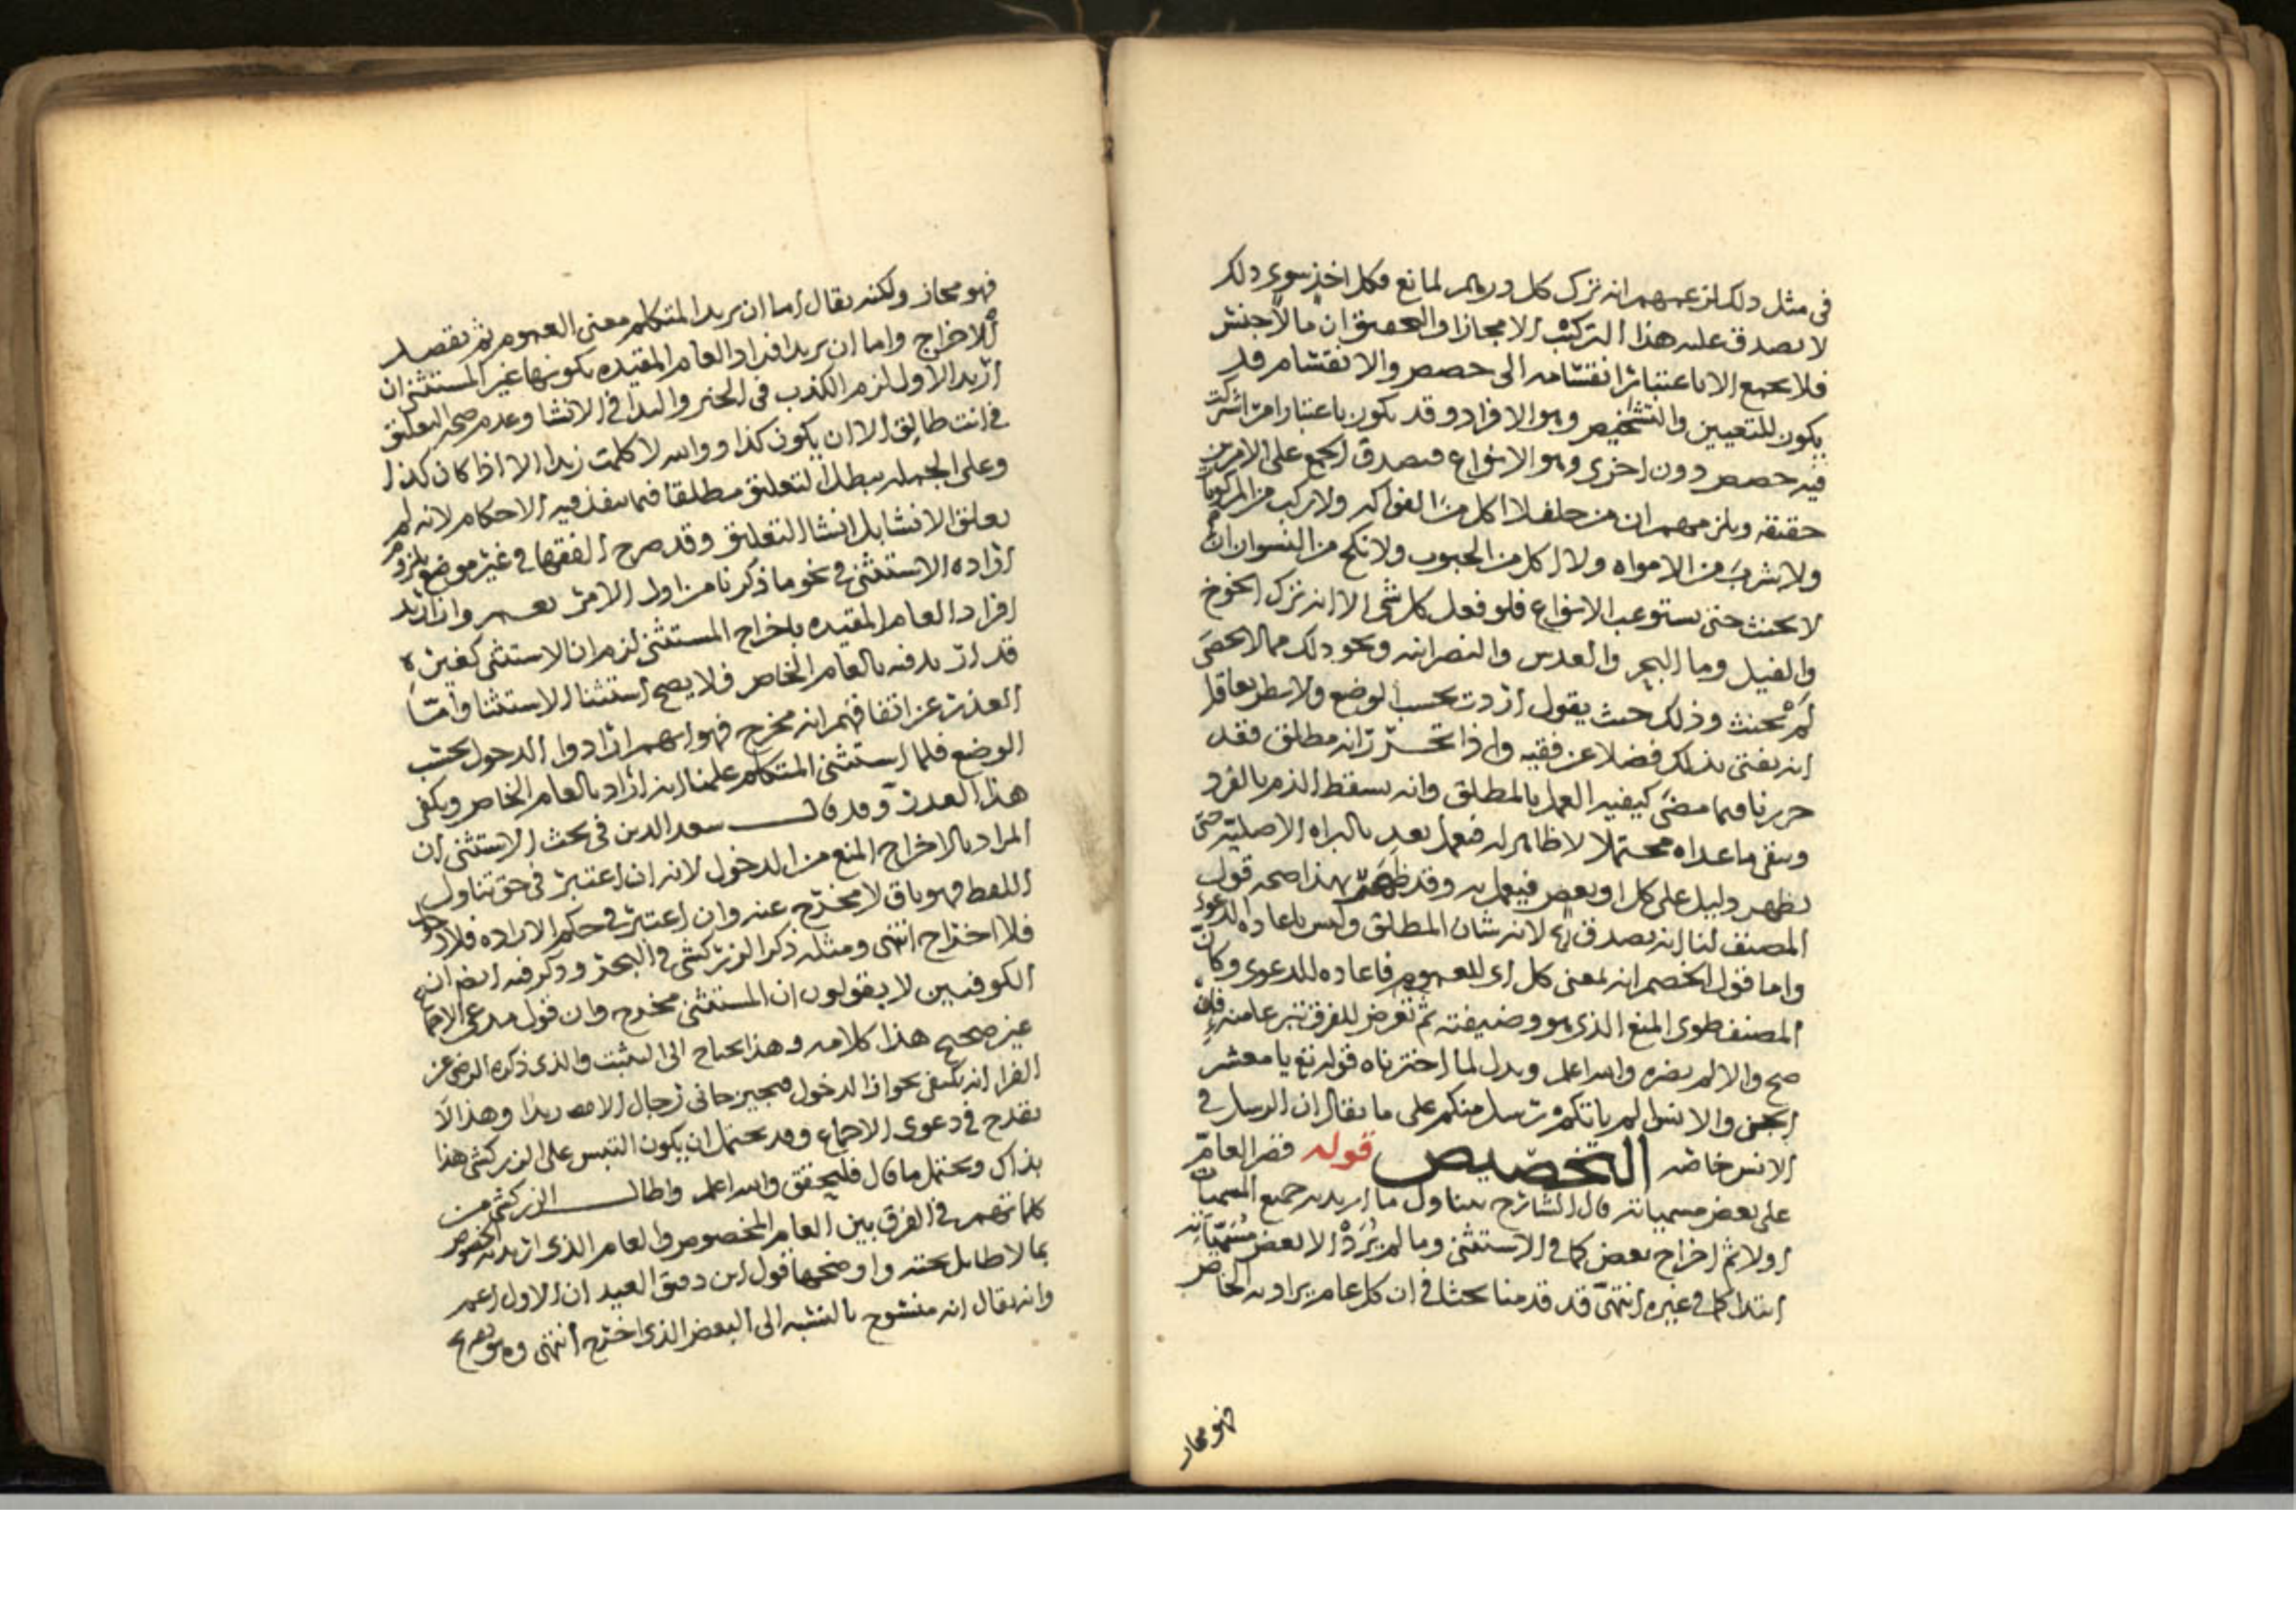 في مثل ذلك لزعمهم انه ترك كل ورهم لمانع فكل اخذ سوى ذلك
لا يصدق عليه هذا التركيب الا مجازا والتحقيق ان مالاجنس
فلا يجمع الا باعتبار انقسامه الى حصص والانقسام قد
يكون للتعيين والتشخيص وهو الافراد وقد يكون باعتبار امر اشتركت
فيه حصص دون اخرى وهو الانواع فيصدق الجمع على الامرين
حقيقة ويلزمهم ان من حلف لا اكل من الفواكه ولا ركب من المركوبات
ولا شرب من الامواه ولا اكل من الحبوب ولا نكح من النسوان انه
لا يحنث حتى يستوعب الانواع فلو فعل كل شي الا انه ترك الخوخ
والفيل وما البحر والعدس والنصرانيه ونحو ذلك مما لا يحصى
لم يحنث وذلك حيث يقول اردت بحسب الوضع ولا يظن بعاقل
انه يفتي بذلك فضلا عن فقيه واذا تحرر انه مطلق فقد
حررنا فيما مضى كيفيه العمل بالمطلق وانه يسقط الذم بالفرد
ويبقى ما عداه محتملا لا ظاهر له فيعمل بعد بالبراه الاصلية حتى
يظهر دليل على كل او بعض فيعمل به وقد ظهر بهذا صحه قول
المصنف لنا انه يصدق لانه شان المطلق وليس باعاده للدعوى
واما قول الخصم انه لمعنى كل اي للعموم فاعاده للدعوى وكان
المصنف طوى المنع الذي هو وضيفته ثم تعرض للفرق تبرعا منه فان
صح والا لم يضره والله اعلم ويدل لما اخترناه قوله تع يا معشر
الجن والانس الم ياتكم رسل منكم على ما يقال ان الرسل في
الانس خاصه التخصيص قوله قصر العام
على بعض مسمياته قال الشارح يتناول ما اريد به جميع المسميات
اولا ثم اخراج بعض كما في الاستثنى وما لم يرد الا بعض مسمياته
ابتدا كما في غيره انتهى قد قدمنا بحثا في ان كل عام يراد به الخاص
فهو مجاز
فهو مجاز ولكنه يقال اما ان يريد المتكلم معنى العموم ثم يقصد
الاخراج واما ان يريد افراد العام المقيده بكونها غير المستثنى ان
اريد الاول لزم الكذب في الخبر والبدا في الانشا وعدم صحه التعليق
في انت طالق الا ان يكون كذا ووالله لا كلمت زيدا الا اذا كان كذا
وعلى الجمله يبطل التعليق مطلقا فيما تنفذ فيه الاحكام لانه لم
يعلق الانشا بل انشا التعليق وقد صرح الفقها في غير موضع بلزوم
اراده الاستثنى في نحو ما ذكرنا من اول الامر نعم وان اريد
افراد العام المقيده باخراج المستثنى لزم ان الاستثنى كغيره
قد اريد فيه بالعام الخاص فلا يصح استثنا الاستثنا واما
العذر عن اتفاقهم انه مخرج فهو انهم ارادوا الدخول بحسب
الوضع فلما استثنى المتكلم علمنا انه اراد بالعام الخاص ويكفي
هذا العذر وقد قال سعد الدين في بحث الاستثنى ان
المراد بالاخراج المنع من الدخول لانه ان اعتبر في حق تناول
اللفظ فهو باق لا مخرج عنه وان اعتبر في حكم الاراده فلا دخول
فلا اخراج انتهى ومثله ذكر الزركشي في البحر وذكر فيه ايضا ان
الكوفيين لا يقولون ان المستثنى مخرج وان قول مدعي الاجماع
غير صحيح هذا كلامه وهذا يحتاج الى التثبت والذي ذكره الرضي عن
الفرا انه يكتفي بجواز الدخول فيجيز جاني رجال الا زيدا وهذا لا
يقدح في دعوى الاجماع وقد يحتمل ان يكون التبس على الزركشي هذا
بذاك ويحتمل ما قال فليحقق والله اعلم واطال الزركشي من
كلماتهم في الفرق بين العام المخصوص والعام الذي اريد به الخصوص
بما لا طايل تحته واوضحها قول ابن دقيق العيد ان الاول اعم
وانه يقال انه منسوخ بالنسبه الى البعض الذي اخرج انتهى وهو